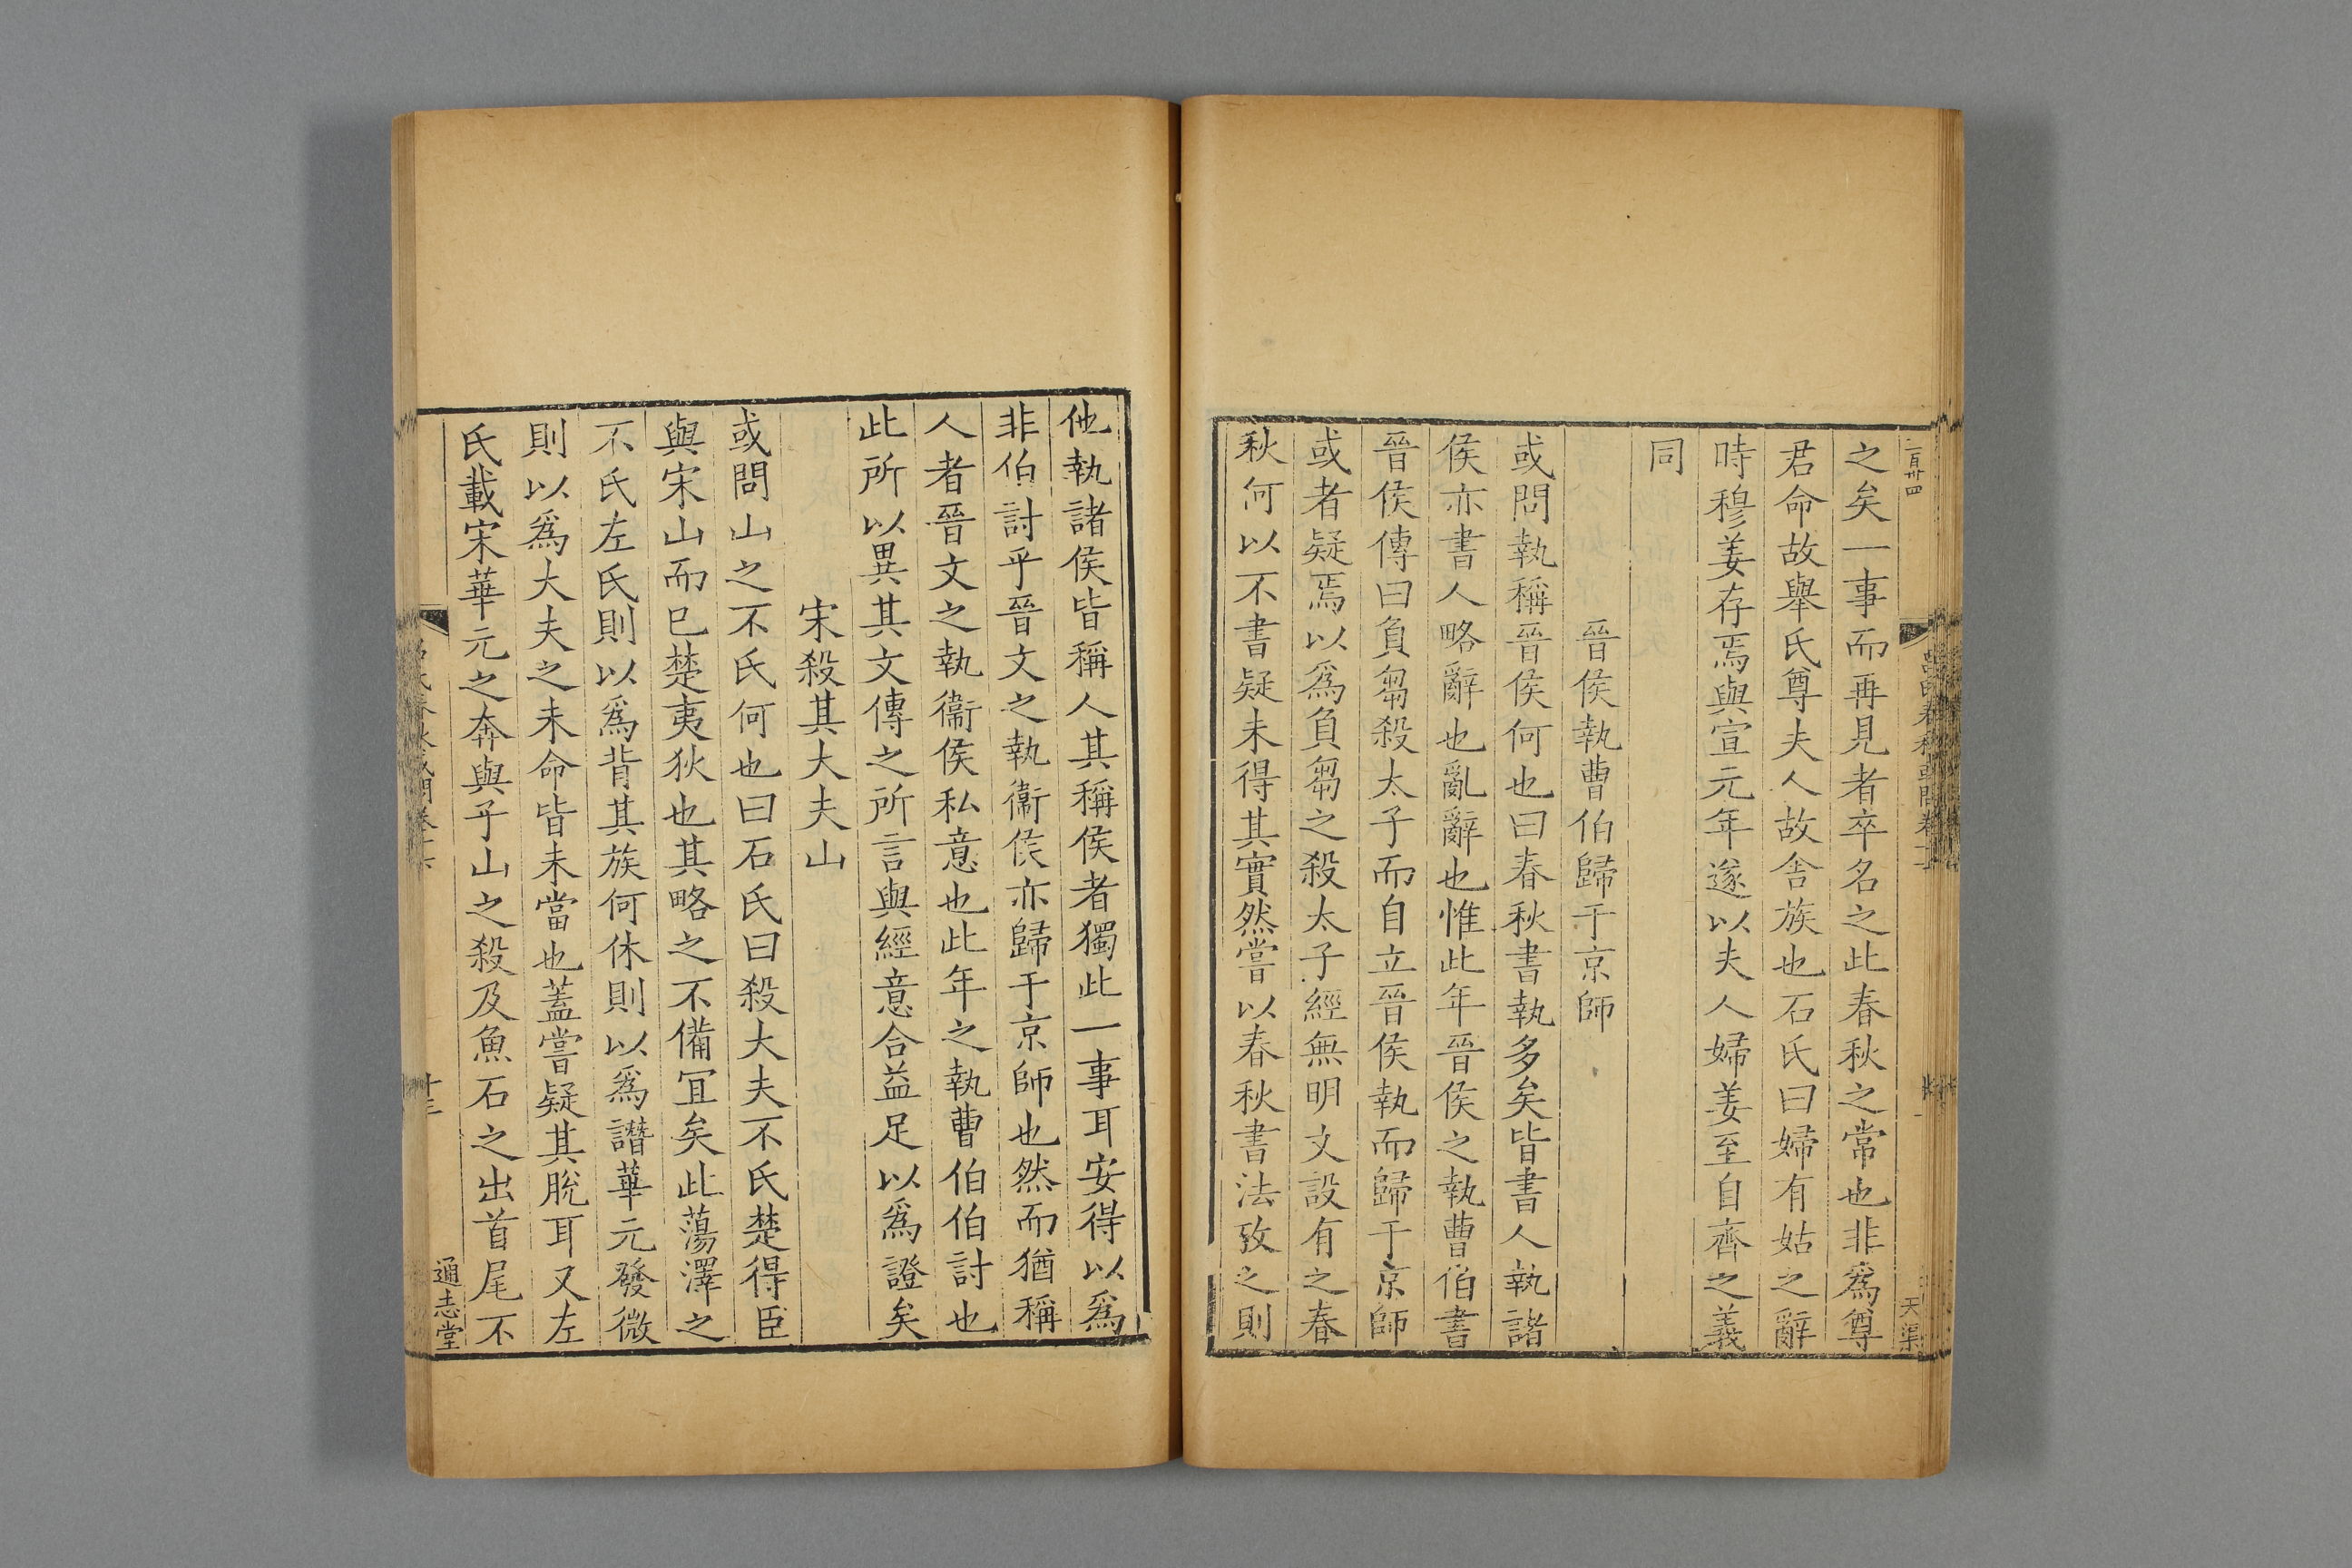 二百卅四
天渠
之矣一事而再見者卒名之此春秋之常也非爲尊
君命故舉氏尊夫人故舍族也石氏曰婦有姑之辭
時穆姜存焉與宣元年遂以夫人婦姜至自齊之義
同
晉侯執曹伯歸于京師
或問執稱晉侯何也曰春秋書執多矣皆書人執諸
侯亦書人略辭也亂辭也惟此年晉侯之執曹伯書
晉侯傳曰負芻殺太子而自立晉侯執而歸于京師
或者疑焉以爲負芻之殺太子經無明文設有之春
秋何以不書疑未得其實然嘗以春秋書法攷之則
他執諸侯皆稱人其稱侯者獨此一事耳安得以爲
非伯討乎晉文之執衞侯亦歸于京師也然而猶稱
人者晉文之執衞侯私意也此年之執曹伯伯討也
此所以異其文傳之所言與經意合益足以爲證矣
宋殺其大夫山
或問山之不氏何也曰石氏曰殺大夫不氏楚得臣
與宋山而已楚夷狄也其略之不備宜矣此蕩澤之
不氏左氏則以爲背其族何休則以爲譖華元發微
則以爲大夫之未命皆未當也蓋嘗疑其脫耳又左
氏載宋華元之奔與乎山之殺及魚石之出首尾不
十三
通志堂